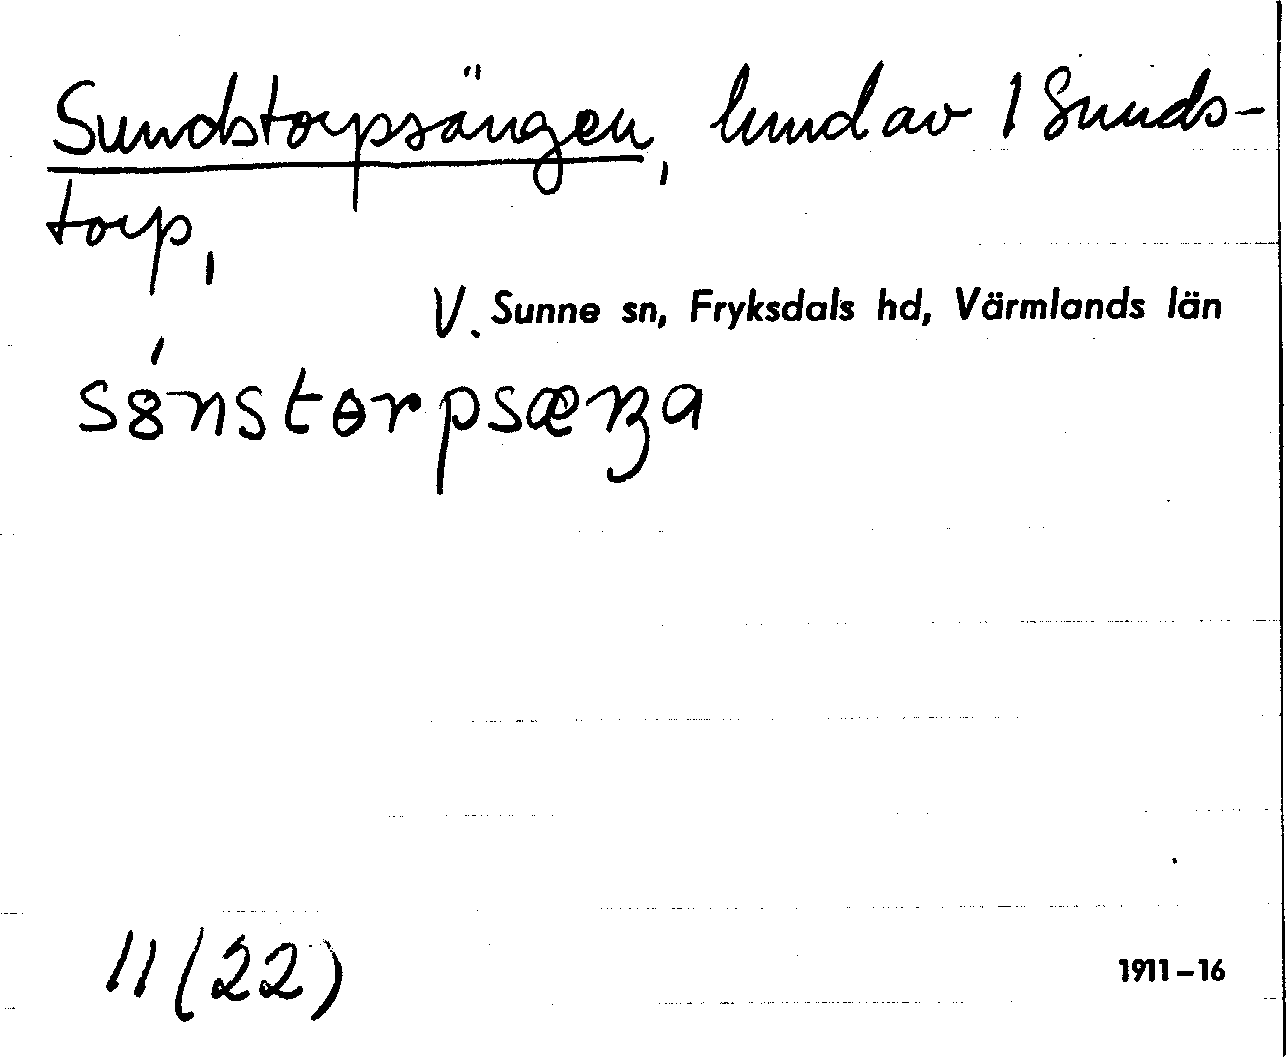 Sundstorpsängen, lund av 1 Sunds-
torp,
V. Sunne sn, Fryksdals hd, Värmlands län
11 (22)
1911-16